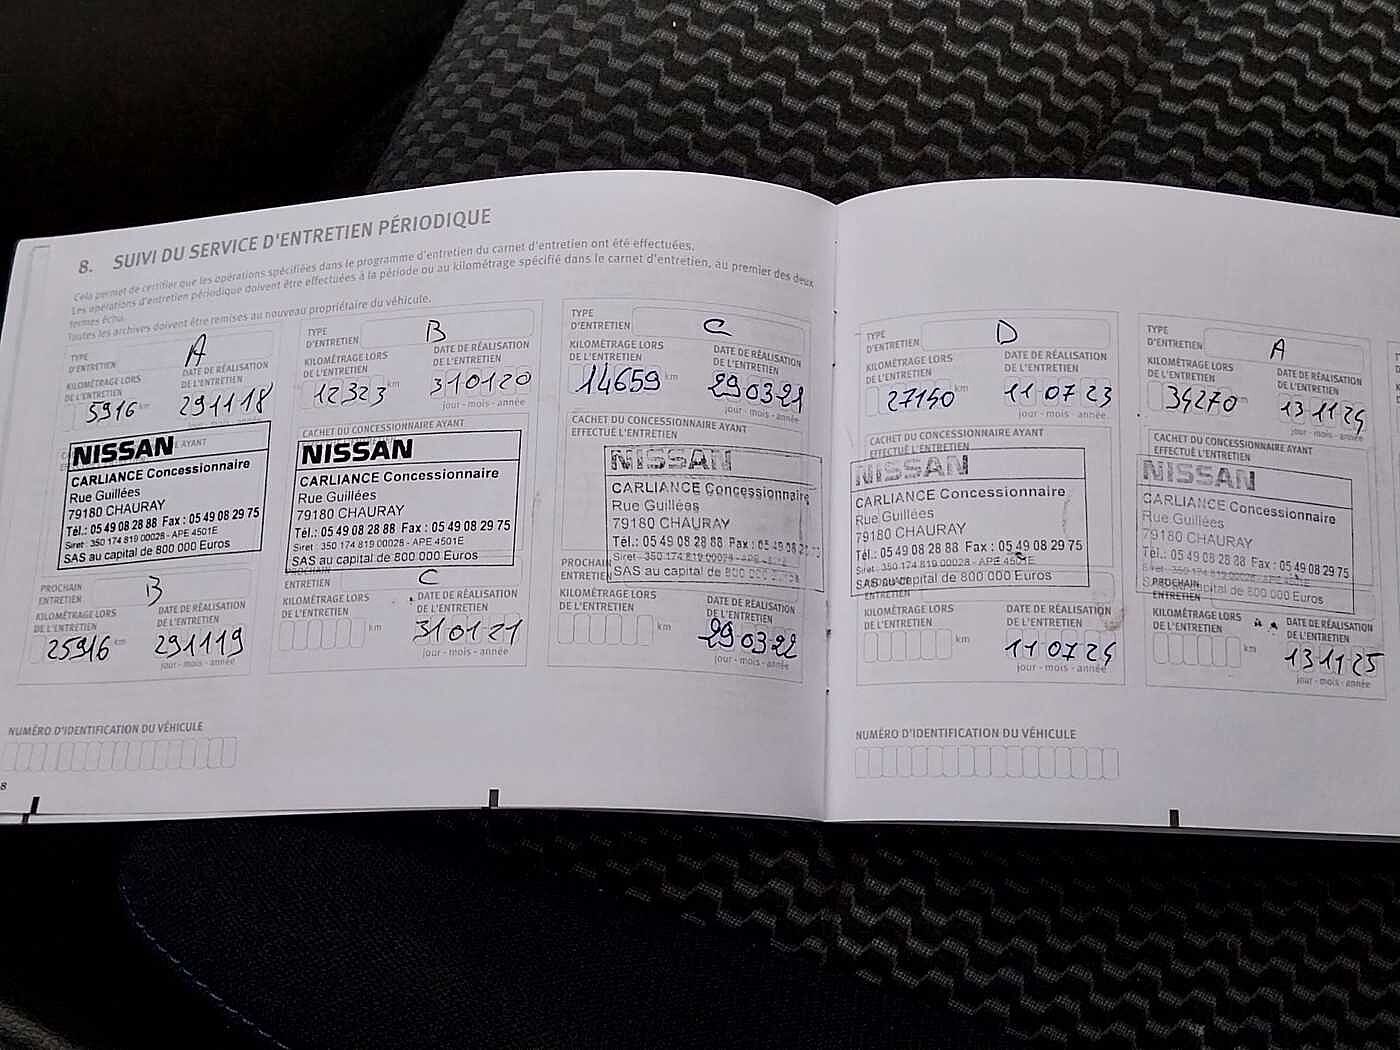 8. SUIVI DU SERVICE D'ENTRETIEN PÉRIODIQUE
Cela permet de certifier que les opérations spécifiées dans le programme d'entretien du carnet d'entretien ont été effectuées.
Les opérations d'entretien périodique doivent être effectuées à la période ou au kilométrage spécifié dans le carnet d'entretien, au premier des deux
termes échu.
Toutes les archives doivent être remises au nouveau propriétaire du véhicule.
TYPE
D'ENTRETIEN A
KILOMÉTRAGE LORS
DE L'ENTRETIEN
5916 km
DATE DE RÉALISATION
DE L'ENTRETIEN
291118
AYANT
NISSAN
CARLIANCE Concessionnaire
Rue Guillées
79180 CHAURAY
Tél.: 05 49 08 28 88 Fax : 05 49 08 29 75
Siret : 350 174 819 00028 - APE 4501E
SAS au capital de 800 000 Euros
PROCHAIN
ENTRETIEN B
KILOMÉTRAGE LORS
DE L'ENTRETIEN
25916 km
DATE DE RÉALISATION
DE L'ENTRETIEN
291119
jour - mois - année
TYPE
D'ENTRETIEN B
KILOMÉTRAGE LORS
DE L'ENTRETIEN
12323 km
DATE DE RÉALISATION
DE L'ENTRETIEN
310120
jour - mois - année
CACHET DU CONCESSIONNAIRE AYANT
NISSAN
CARLIANCE Concessionnaire
Rue Guillées
79180 CHAURAY
Tél.: 05 49 08 28 88 Fax : 05 49 08 29 75
Siret : 350 174 819 00028 - APE 4501E
SAS au capital de 800 000 Euros
PROCHAIN
ENTRETIEN C
KILOMÉTRAGE LORS
DE L'ENTRETIEN
km
DATE DE RÉALISATION
DE L'ENTRETIEN
310121
jour - mois - année
TYPE
D'ENTRETIEN C
KILOMÉTRAGE LORS
DE L'ENTRETIEN
14659 km
DATE DE RÉALISATION
DE L'ENTRETIEN
290321
jour - mois - année
CACHET DU CONCESSIONNAIRE AYANT
EFFECTUÉ L'ENTRETIEN
NISSAN
CARLIANCE Concessionnaire
Rue Guillées
79180 CHAURAY
Tél.: 05 49 08 28 88 Fax : 05 49 08 29 75
Siret : 350 174 819 00028 - APE
SAS au capital de 800 000 Euros
PROCHAIN
ENTRETIEN
KILOMÉTRAGE LORS
DE L'ENTRETIEN
km
DATE DE RÉALISATION
DE L'ENTRETIEN
290322
jour - mois - année
NUMÉRO D'IDENTIFICATION DU VÉHICULE
8
TYPE
D'ENTRETIEN D
KILOMÉTRAGE LORS
DE L'ENTRETIEN
27140 km
DATE DE RÉALISATION
DE L'ENTRETIEN
110723
jour - mois - année
CACHET DU CONCESSIONNAIRE AYANT
EFFECTUÉ L'ENTRETIEN
NISSAN
CARLIANCE Concessionnaire
Rue Guillées
79180 CHAURAY
Tél.: 05 49 08 28 88 Fax : 05 49 08 29 75
Siret : 350 174 819 00028 - APE 4501E
SAS au capital de 800 000 Euros
ENTRETIEN
KILOMÉTRAGE LORS
DE L'ENTRETIEN
km
DATE DE RÉALISATION
DE L'ENTRETIEN
110724
jour - mois - année
TYPE
D'ENTRETIEN A
KILOMÉTRAGE LORS
DE L'ENTRETIEN
34270 km
DATE DE RÉALISATION
DE L'ENTRETIEN
131124
jour - mois - année
CACHET DU CONCESSIONNAIRE AYANT
EFFECTUÉ L'ENTRETIEN
NISSAN
CARLIANCE Concessionnaire
Rue Guillées
79180 CHAURAY
Tél.: 05 49 08 28 88 Fax : 05 49 08 29 75
Siret : 350 174 819 00028 - APE 4501E
SAS au capital de 800 000 Euros
PROCHAIN
ENTRETIEN
KILOMÉTRAGE LORS
DE L'ENTRETIEN
km
DATE DE RÉALISATION
DE L'ENTRETIEN
131125
jour - mois - année
NUMÉRO D'IDENTIFICATION DU VÉHICULE